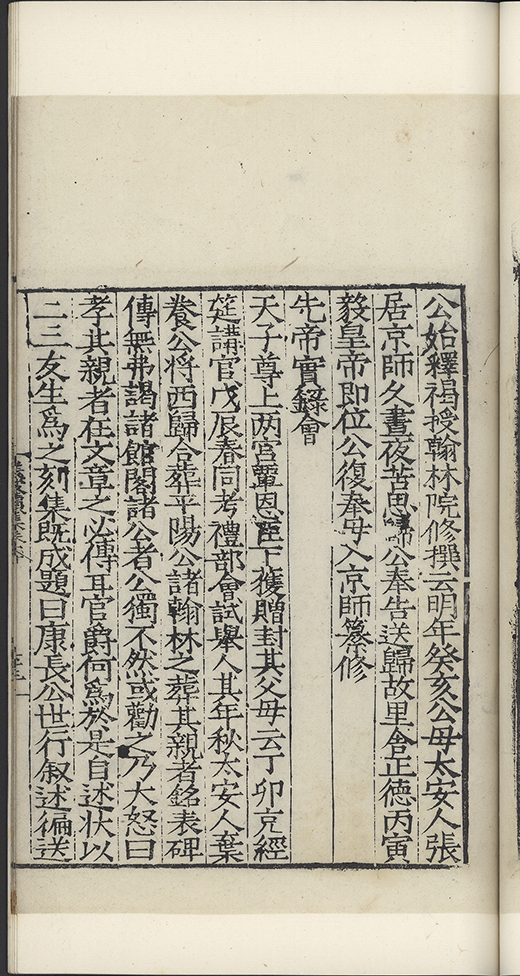 公始釋褐授翰林院修撰云明年癸亥公母太安人張
居京師久晝夜苦思歸公奉告送歸故里舍正德丙寅
毅皇帝即位公復奉母入京師纂修
先帝實錄會
天子尊上两宫覃恩臣下獲贈封其父母云丁卯充經
筵講官戊辰春同考禮部會試舉人其年秋太安人棄
養公将西歸合葬平陽公諸翰林之葬其親者銘表碑
傳無弗謁諸館閣諸公者公獨不然或勸之乃大怒曰
孝其親者在文章之必傳耳官爵何為於是自述状以
二三友生爲之刻集既成題曰康長公世行叙述徧送